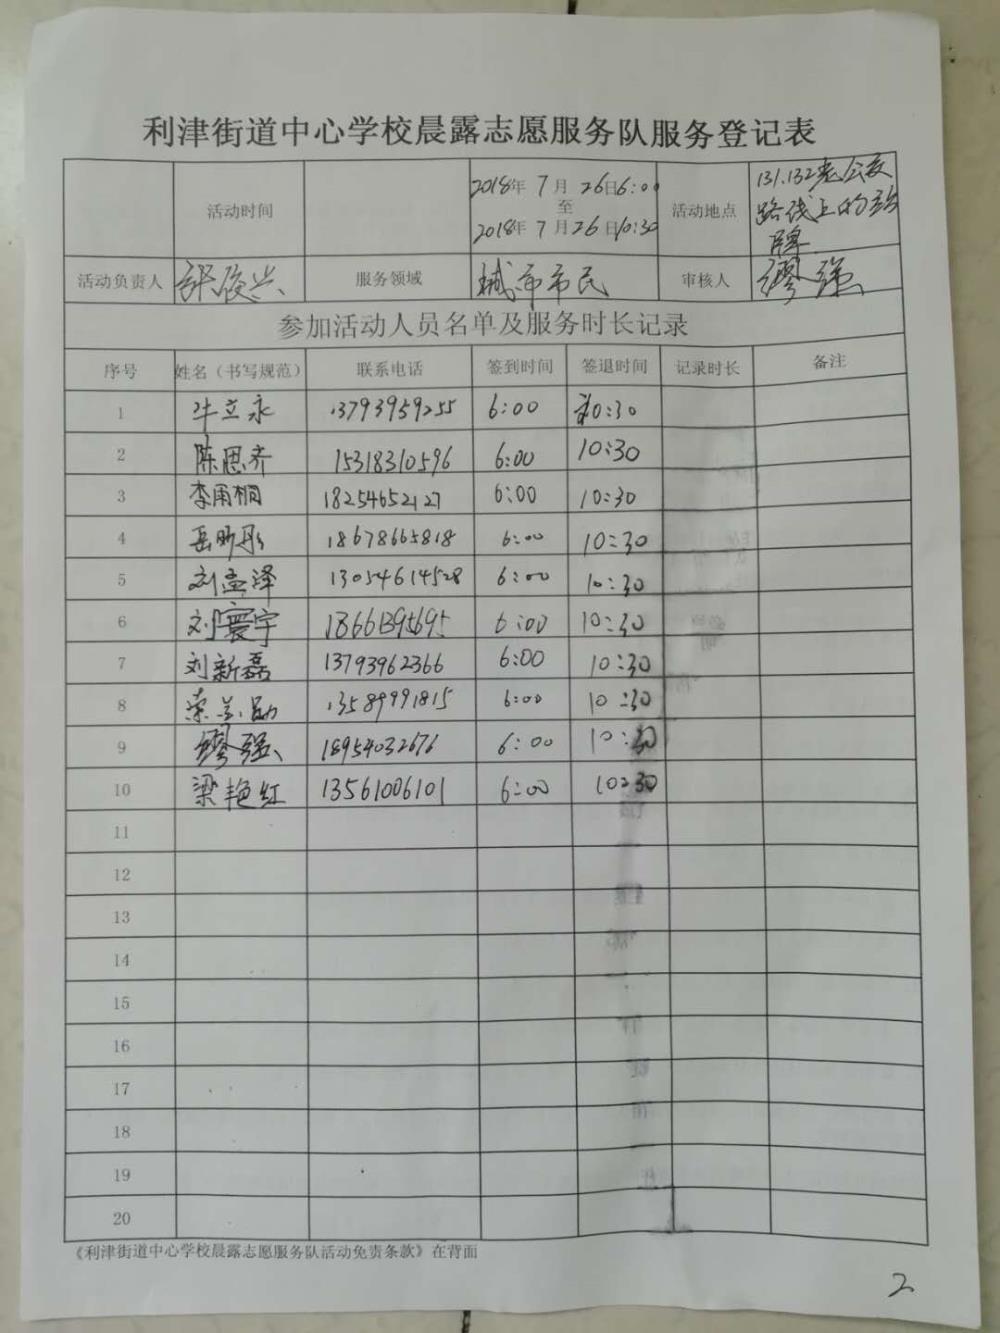 利津街道中心学校晨露志愿服务队服务登记表
活动时间 2018年 7月 26日6:00 至 2018年 7月26日10:30 活动地点 131.132老公交路线上的站牌
活动负责人 张俊兴 服务领域 城市市民 审核人 缪强
参加活动人员名单及服务时长记录
序号 姓名（书写规范） 联系电话 签到时间 签退时间 记录时长 备注
1 牛立永 13793959255 6:00 10:30
2 陈思齐 15318310596 6:00 10:30
3 李雨桐 18254652127 6:00 10:30
4 岳昕彤 18678665818 6:00 10:30
5 刘孟泽 13054614528 6:00 10:30
6 刘寰宇 18661395695 6:00 10:30
7 刘新磊 13793962366 6:00 10:30
8 13589991815 6:00 10:30
9 缪强 18954032676 6:00 10:30
10 梁艳红 13561006101 6:00 10:30
11
12
13
14
15
16
17
18
19
20
《利津街道中心学校晨露志愿服务队活动免责条款》在背面
2